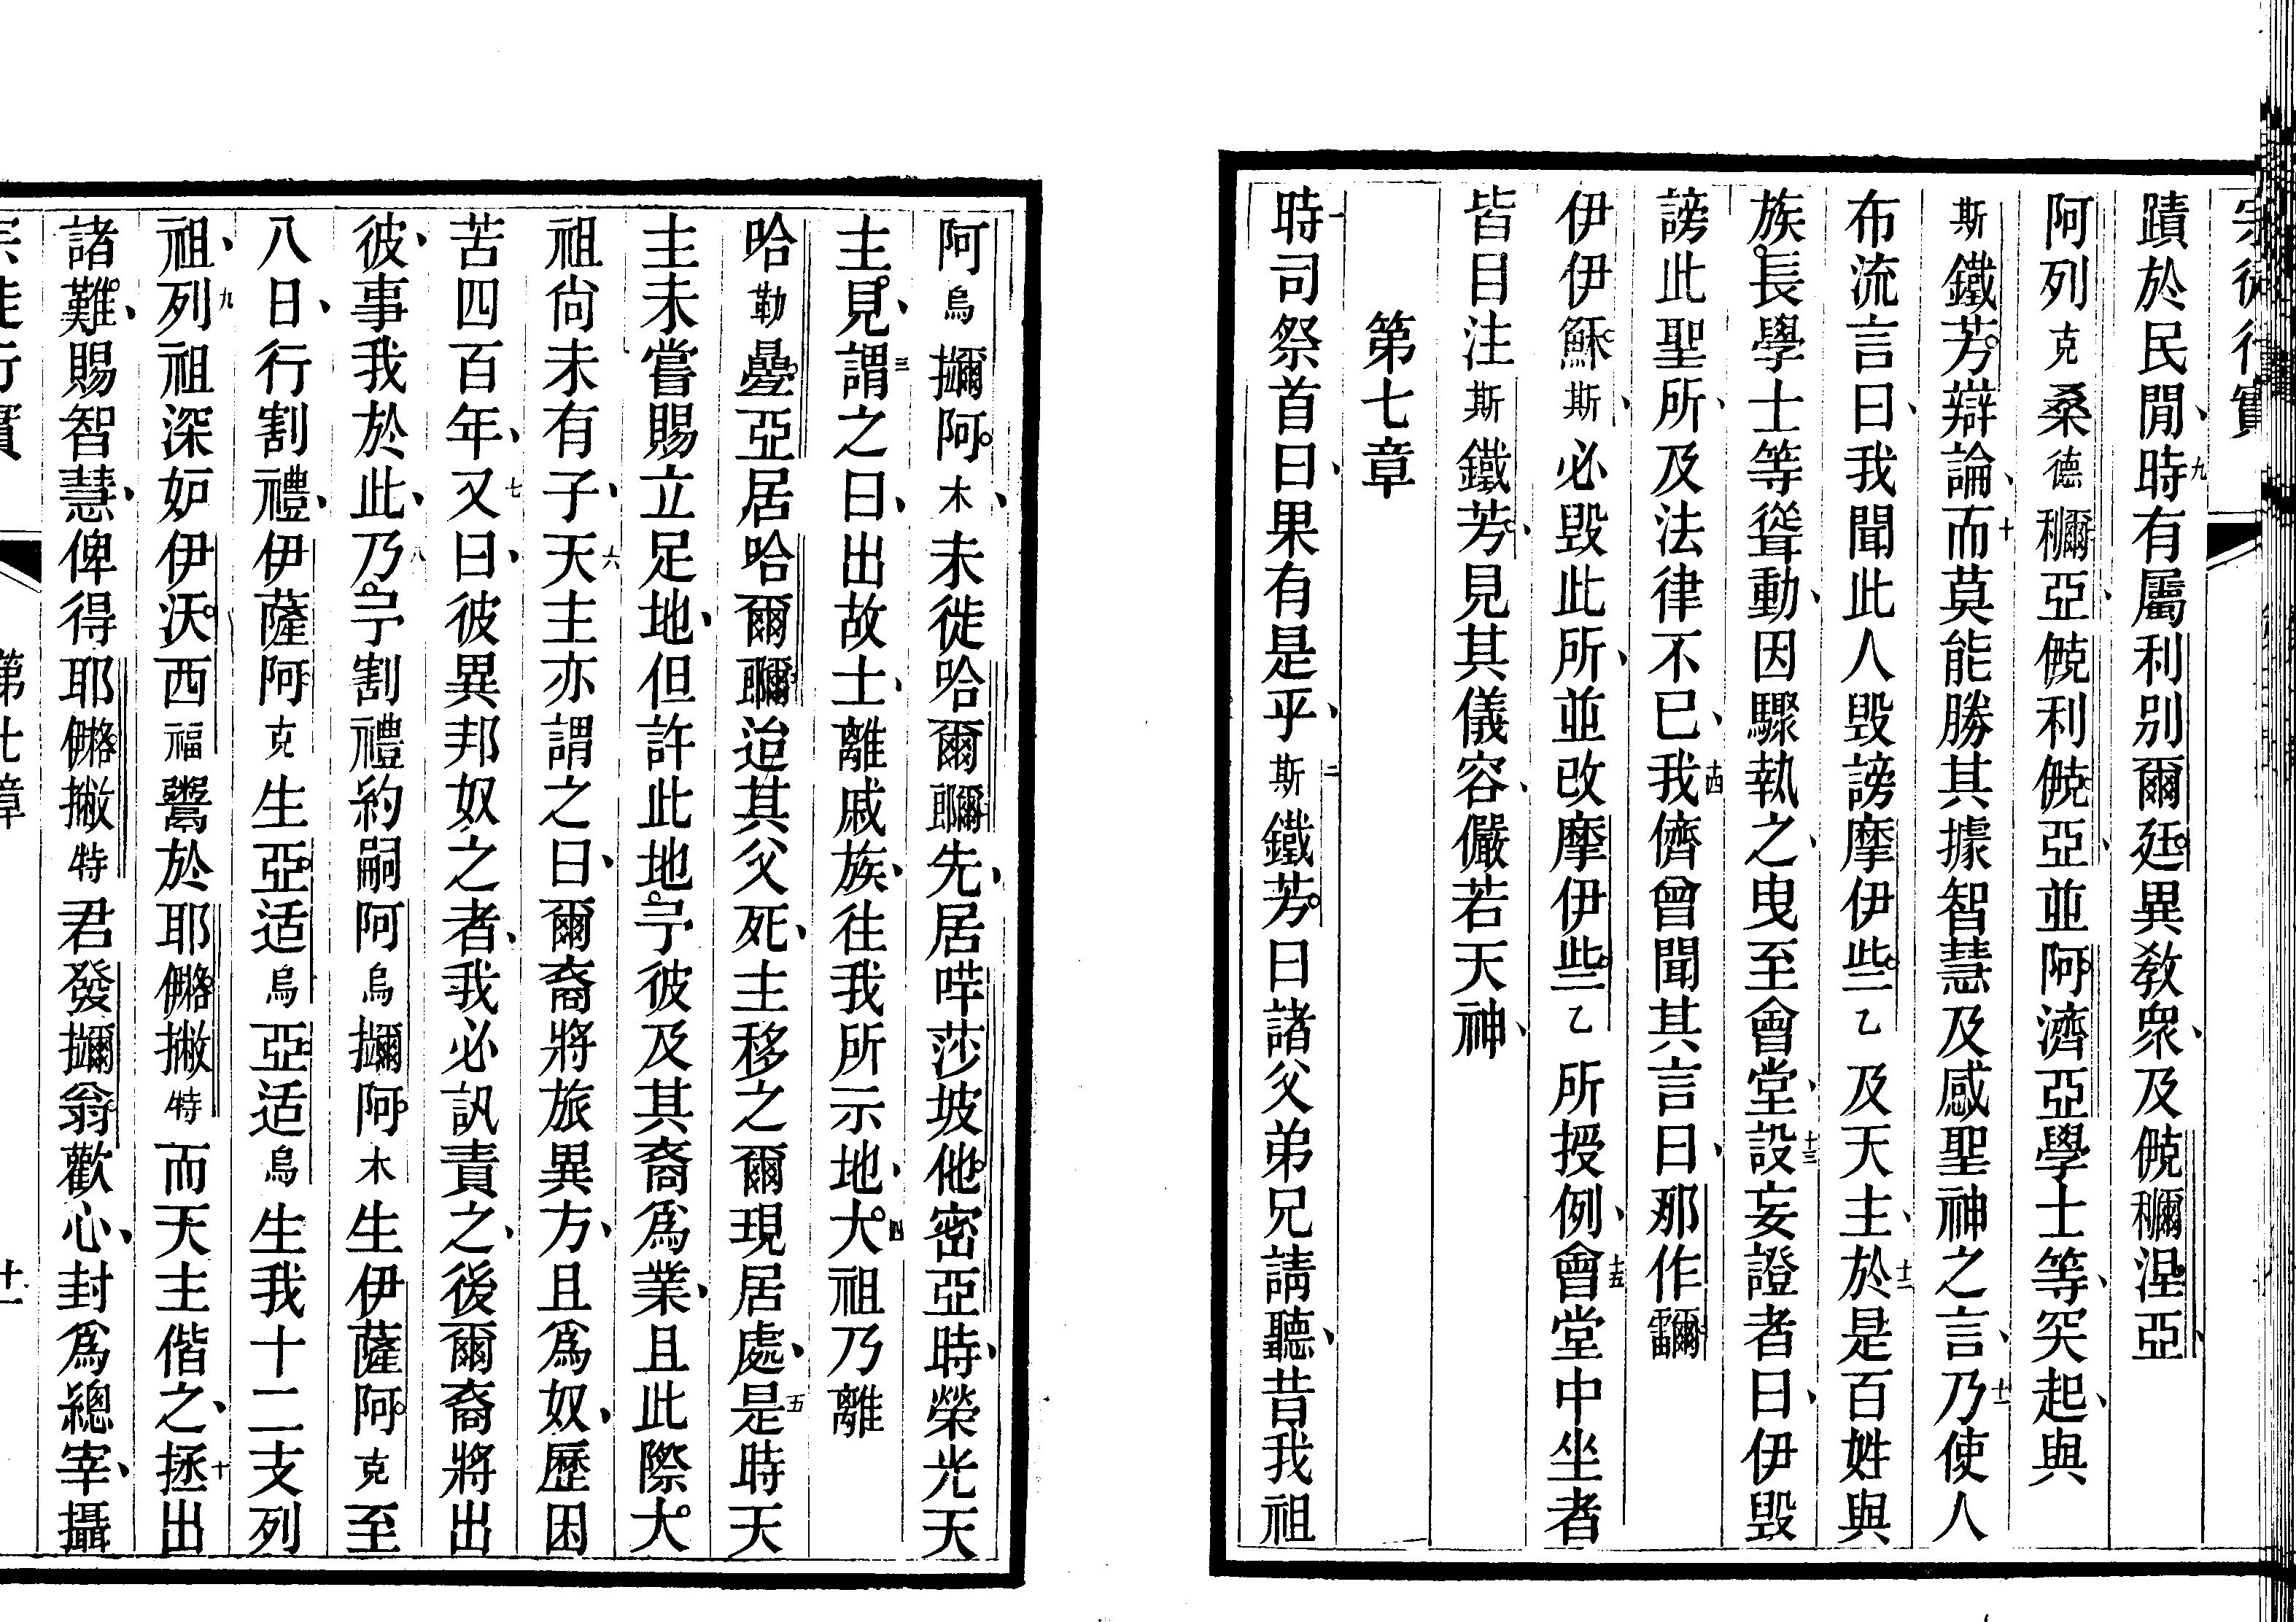 宗徒行實
蹟於民閒時九有屬利别爾廷異教衆及𠐤穪涅亞
阿列克桑德穪亞𠐤利𠐤亞並阿濟亞學士等突起與
斯鐵芳辯論十而莫能勝其據智慧及感聖神之言乃十一使人
布流言曰我聞此人毀謗摩伊些乙及天主於十二是百姓與
族長學士等聳動因驟執之曳至會堂設十三妄證者曰伊毀
謗此聖所及法律不已我十四儕曾聞其言曰那作
伊伊穌斯必毀此所並改摩伊些乙所授例會十五堂中坐者
皆目注斯鐵芳見其儀容儼若天神
第七章
時一司祭首曰果有是乎斯二鐵芳曰諸父弟兄請聽昔我祖
阿烏擟阿木未徙哈爾先居哶莎坡他密亞時榮光天
主見謂三之曰出故土離戚族往我所示地大四祖乃離
哈勒疊亞居哈爾迨其父死主移之爾現居處是五時天
主未嘗賜立足地但許此地予彼及其裔爲業且此際大
祖尙未有子天六主亦謂之曰爾裔將旅異方且爲奴歷困
苦四百年又七曰彼異邦奴之者我必訊責之後爾裔將出
彼事我於此乃八予割禮約嗣阿烏擟阿木生伊薩阿克至
八日行割禮伊薩阿克生亞适烏亞适烏生我十二支列
祖列九祖深妒伊沃西福鬻於耶撇特而天主偕之拯十出
諸難賜智慧俾得耶撇特君發擟翁歡心封爲總宰攝
宗徒行實
第七章
十一